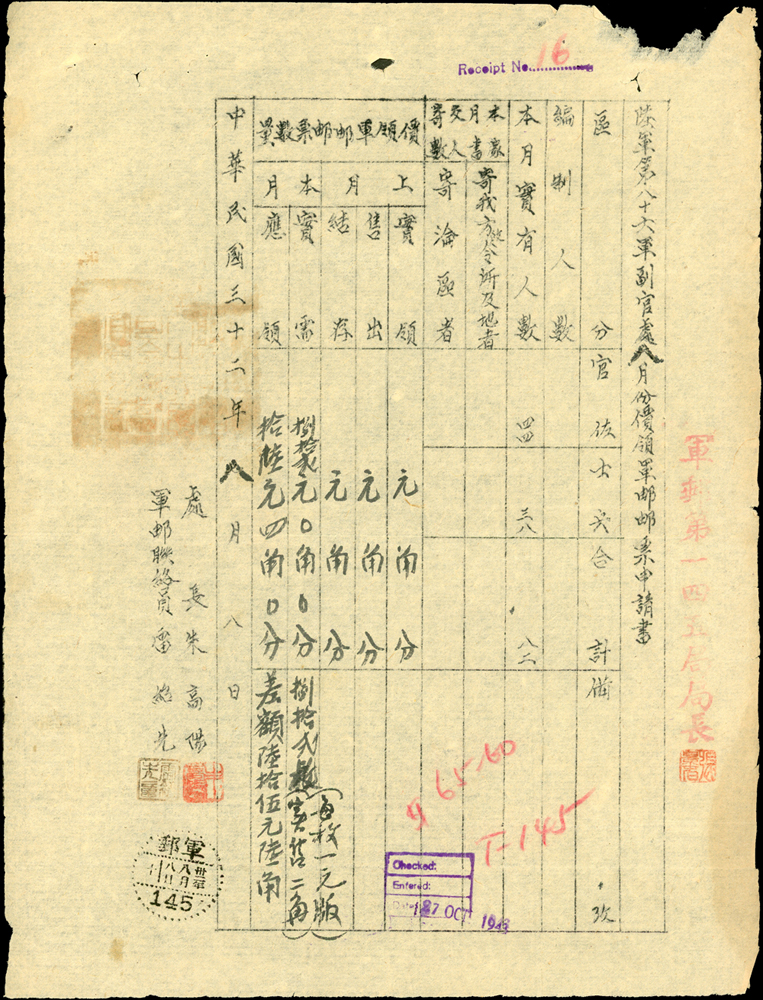 Receipt No. 16
陸軍第八十六軍副官處八月份價領軍郵郵票申請書
軍郵第一四五局局長
區分 官佐 士兵 合計 備攷
編制人數
本月實有人數 四四 三八 八二
本月家書交寄人數
寄我方政令所及地者
寄淪區者
價領軍郵郵票數量
上月
實領 元角分
售出 元角分
結存 元角分
本月
實需 捌拾貳元0角0分 捌拾貳枚(每枚一元版實售二角)
應領 拾陸元四角0分 差額陸拾伍元陸角
中華民國三十二年八月八日
處長朱高陽
軍郵聯絡員雷始光
軍郵
卅二年八月八日
145
$ 65.60
T-145
Checked:
Entered:
Date:
27 OCT 1943